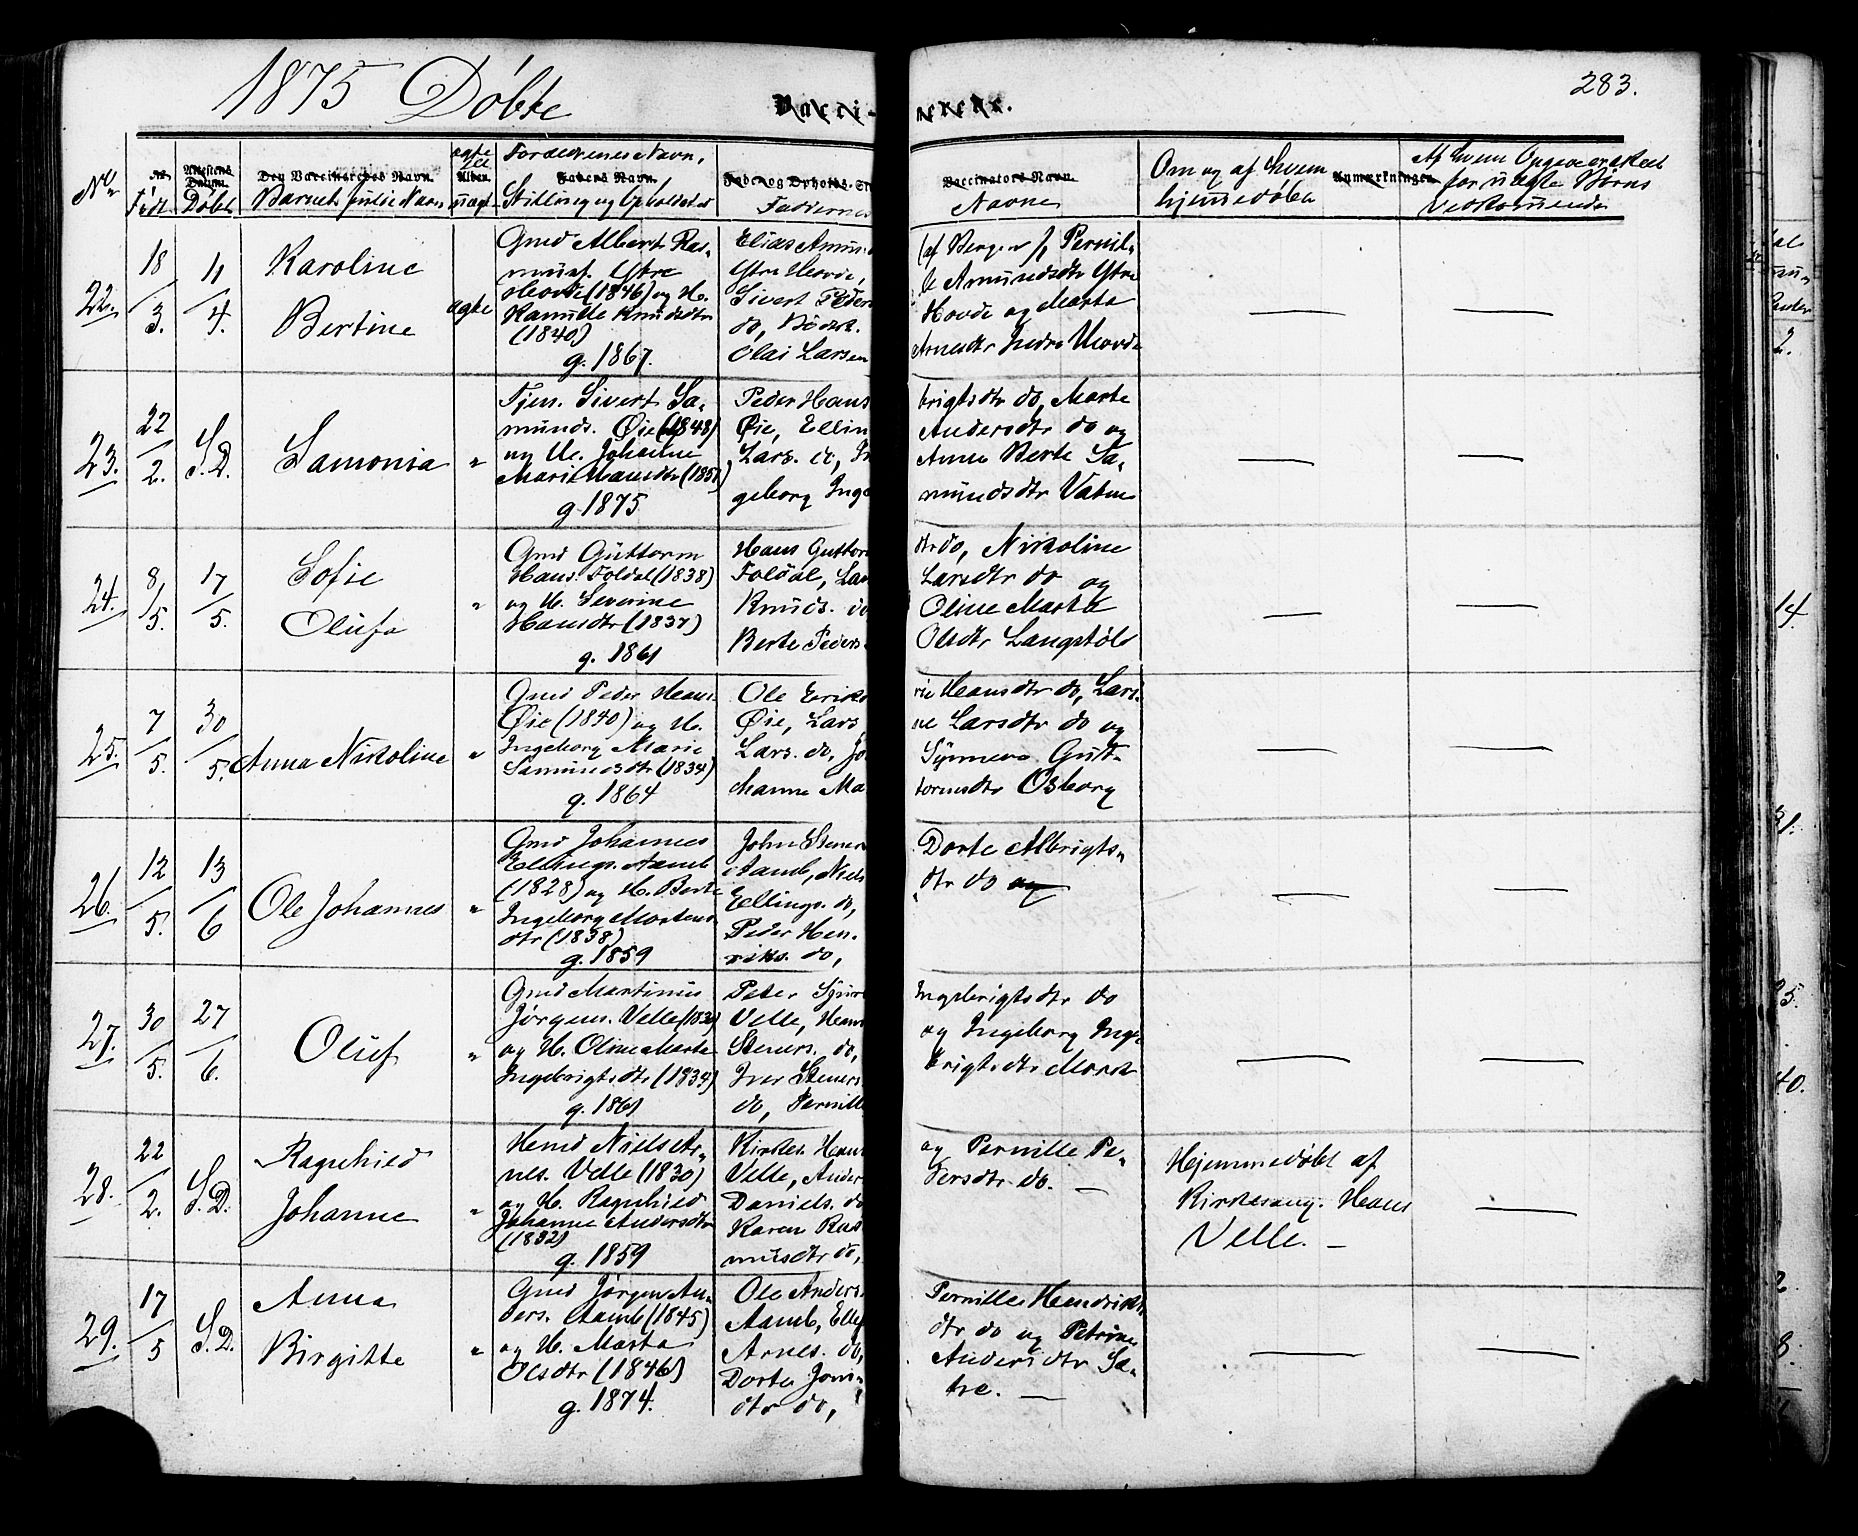 1875 Døbte
Vacci-nerede.
283.
No
Født
Attestens Datum
Døbt
Den Vaccineredes Navn.
Barnets fulde Navn
ægte ell. uægt.
Alder.
Forældrenes Navn,
Faders Navn.
Stilling og Opholdsted
Faddernes
Vaccinators Navn.
Navne
Om og af hvem
hjemmedøbt
Anmærkninger.
Af hvem Opgave er skeet
for uægte Børns
Vedkommende
22.
18/3.
11/4.
Karoline
Bertine
ægte
Gmd Albert Ras-
muss. Ytre
Hovde (1846) og H.
Kamille Knudsdtr
(1840)
g. 1867.
Elias Amun
Ytre Hovde,
Sivert Peders
do,
Olai Larsen
(af Bergen) Pernil-
le Amundsdtr Ytre
Hovde og Marta
Arnesdtr Indre Hovde
23.
22/2.
S.D.
Samonia
"
Tjen. Sivert Sa-
munds. Øie (1848)
og H. Johanne
Marie Hansdtr (1851)
g. 1875
Peder Hans
Øie, Ellin
Lars. do, In
geborg Inge
brigtsdtr do, Marte
Andersdtr do og
Anne Berte Sa-
mundsdtr Vatne
24.
8/5.
17/5.
Sofie
Olufa
"
Gmd Guttorm
Hans. Foldal (1838)
og H. Severine
Hansdtr (1837)
g. 1861
Hans Guttor
Foldal, Lar
Knuds. do
Berte Peders
dtr do, Nikoline
Larsdtr do og
Oline Marta
Olsdtr Langstøl
25.
7/5.
30/5.
Anna Nikoline
"
Gmd Peder Hans.
Øie (1840) og H.
Ingeborg Marie
Samundsdtr (1834)
g. 1864
Ole Eriks
Øie, Lars
Lars. do, Jo
hanne Ma
rie Hansdtr do, Lars-
ine Larsdtr do og
Synneva Gut-
tormsdtr Osborg
26.
12/5.
13/6
Ole Johannes
"
Gmd Johannes
Ellings. Aamb
(1828) og H. Berte
Ingeborg Mortens
dtr (1838)
g. 1859
John Steners
Aamb, Niels
Ellings. do,
Peder Hen-
riks. do,
Dorte Albrigts-
dtr do og
27.
30/5.
27/6.
Oluf
"
Gmd Martinus
Jørgens. Velle
og H. Oline Marta
Ingebrigtsdtr (1834)
g. 1861
Peter Sjur
Velle, Hans
Steners. do,
Iver Steners
do, Pernille
Ingebrigtsdtr do
og Ingeborg Inge-
brigtsdtr Mork
28.
22/2.
S.D.
Ragnhild
Johanne
"
Hmd Niels Ar-
nes. Velle (1830)
og H. Ragnhild
Johanne Andersdtr
(1832)
g. 1859
Kirkes. Hans
Velle, Ander
Daniels. do
Karen Ras
musdtr do,
og Pernille Pe-
dersdtr do. —
Hjemmedøbt af
Kirkesang. Hans
Velle. —
29.
17/5
S.D.
Anna
Birgitte
"
Gmd Jørgen An-
ders. Aamb (1845)
og H. Marta
Olsdtr (1846)
g. 1874.
Ole Anders.
Aamb,
Arnes. do,
Dorte Jons-
dtr do,
Pernille Hendriks
dtr do og Petrine
Andersdtr Sæ-
tre. —
14.